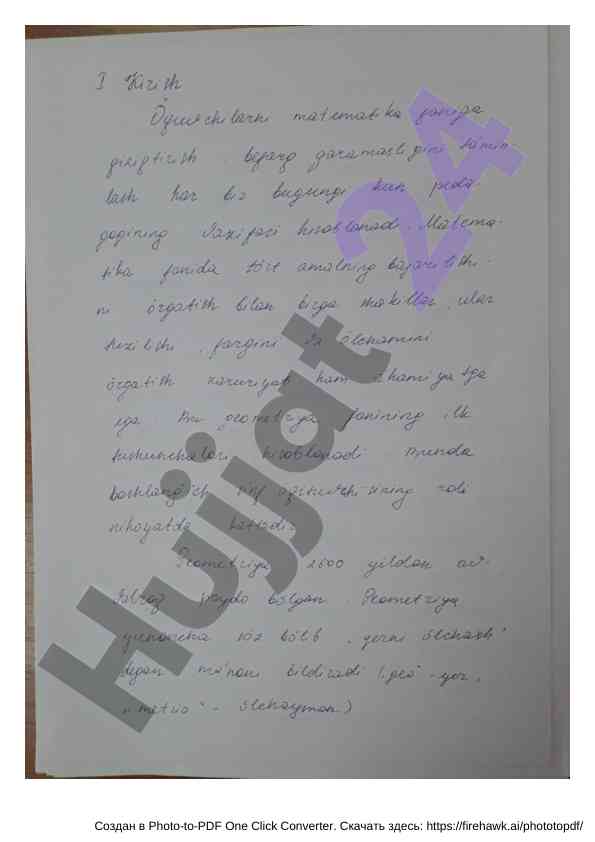 I Kirish
Öquvchilarni matematika faniga
qiziqtirish, befarq qaramasligini ta'min-
lash har bir bugungi kun peda-
gogining vazifasi hisoblanadi. Matema-
tika fanida tört amalning bajarilishi-
ni örgatish bilan birga shakillar, ular
tuzilishi, farqini va ölchamini
örgatish zaruriyat ham ahamiyatga
ega. Bu geometriya fanining ilk
tushunchalari hisoblanadi. Bunda
boshlangich sinf öqituvchisining roli
nihoyatda kattadir.
Geometriya 2600 yildan av-
valroq paydo bölgan. Geometriya
yunoncha söz bölib "yerni ölchash"
degan ma'noni bildiradi ("geo" - yer,
"metrio" - ölchayman)
Hujjat 24
Создан в Photo-to-PDF One Click Converter. Скачать здесь: https://firehawk.ai/phototopdf/